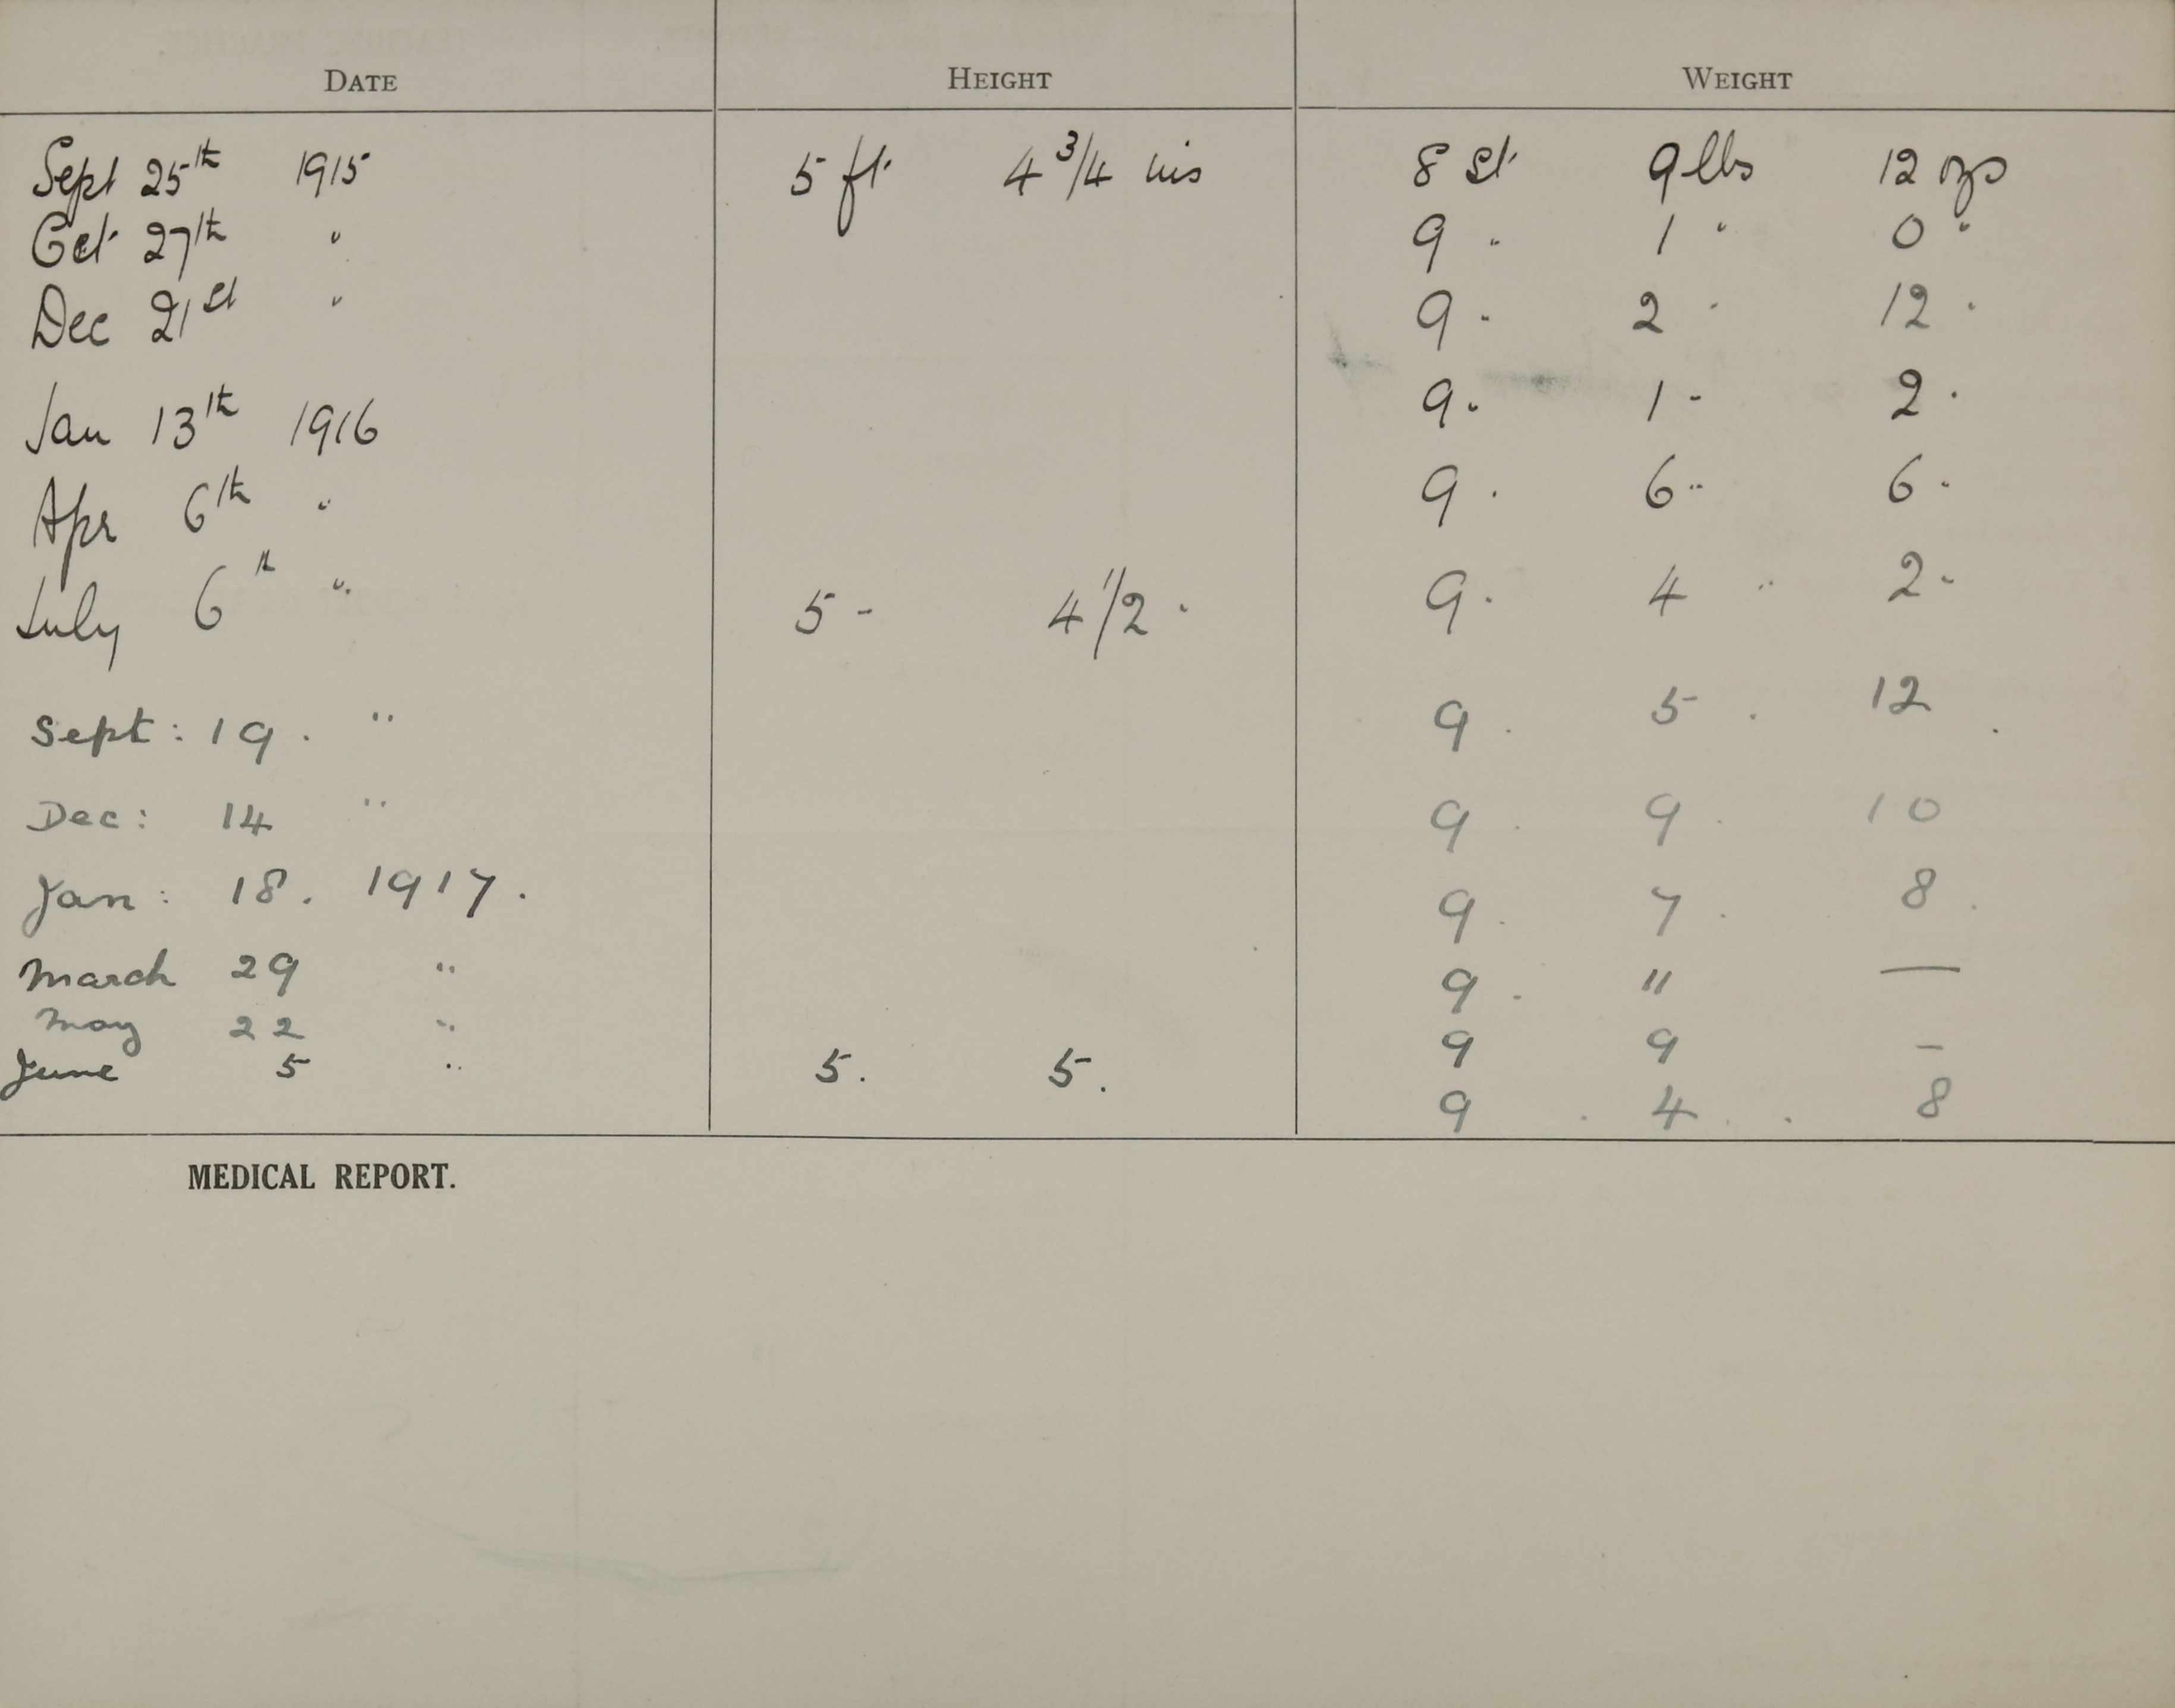 DATE HEIGHT WEIGHT
Sept 25th 1915 5 ft 4 3/4 ins 8 st 9 lbs 12 ozs
Oct 27th " 9 " 1 " 0 "
Dec 21st " 9 " 2 " 12 "
Jan 13th 1916 9 " 1 " 2 "
Apr 6th " 9 " 6 " 6 "
July 6th " 5 - 4 1/2 " 9 " 4 " 2 "
Sept: 19. " 9 . 5 . 12 .
Dec: 14 " 9 . 9 . 10
Jan: 18. 1917. 9 . 7 . 8 .
March 29 " 9 . " —
May 22 " 9 9 –
June 5 " 5. 5. 9 . 4 . 8
MEDICAL REPORT.